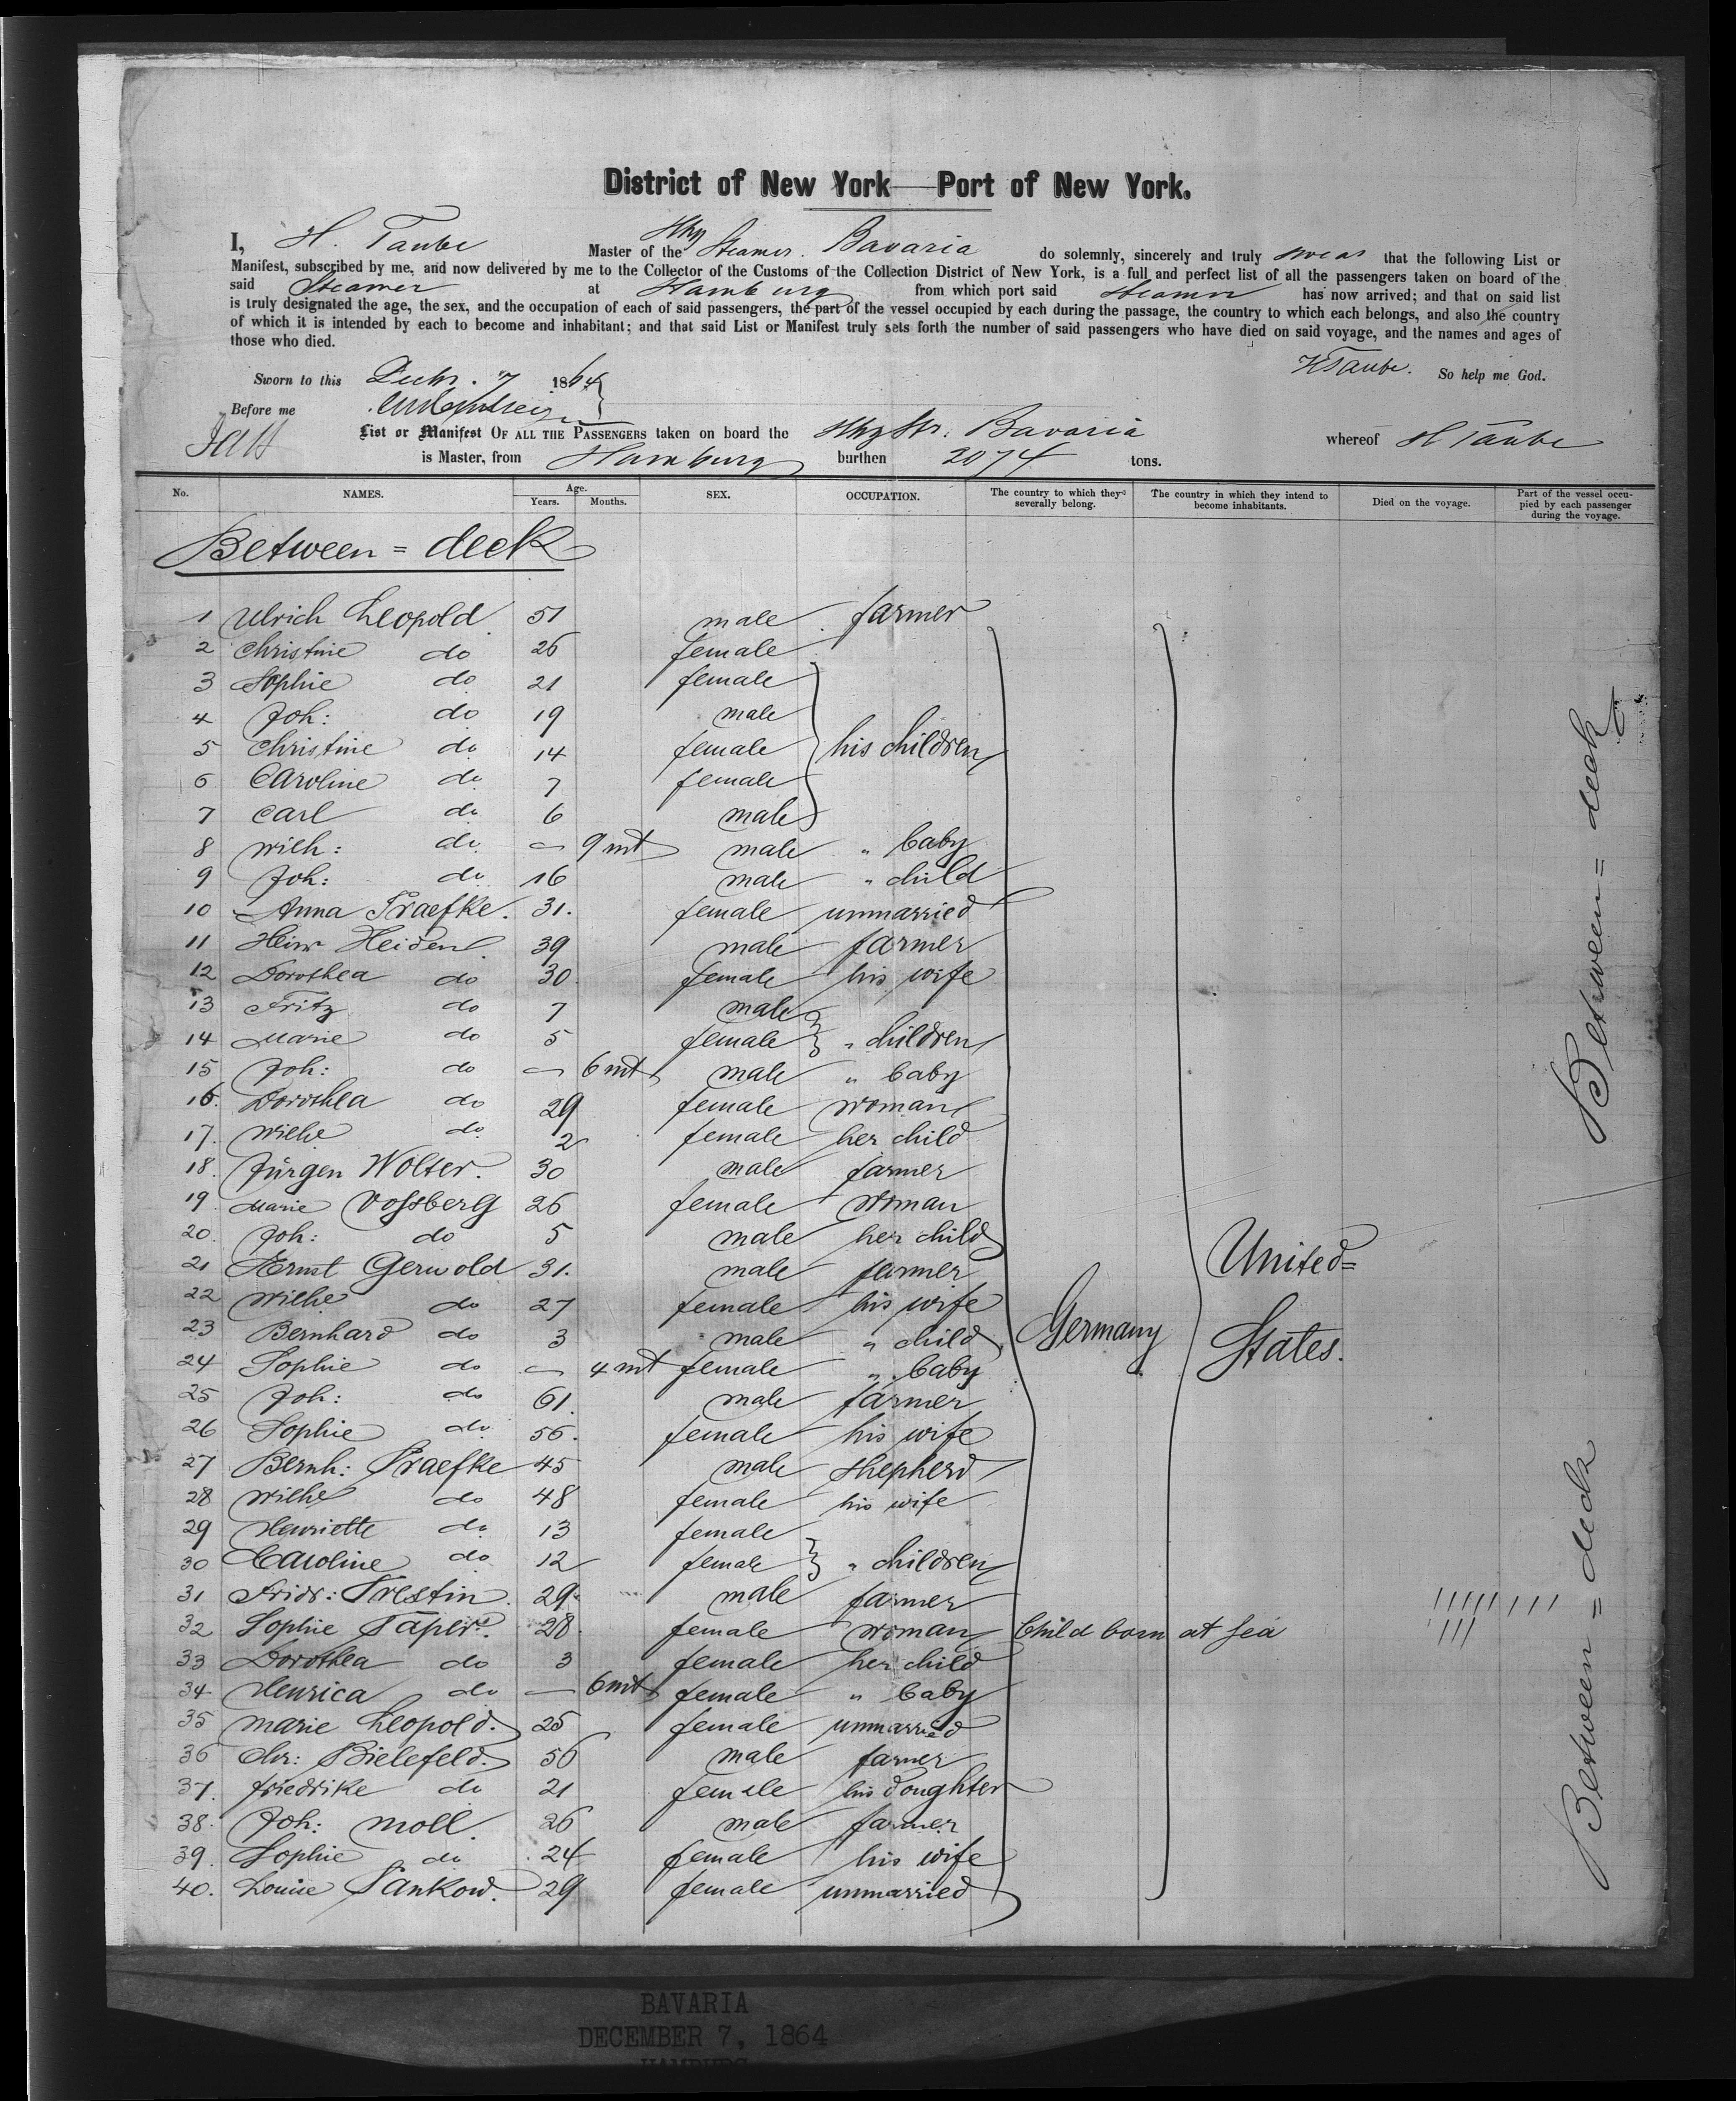 District of New York—Port of New York.
I, H. Taube Master of the Hbg Steamer. Bavaria do solemnly, sincerely and truly swear that the following List or
Manifest, subscribed by me, and now delivered by me to the Collector of the Customs of the Collection District of New York, is a full and perfect list of all the passengers taken on board of the
said Steamer at Hamburg from which port said steamer has now arrived; and that on said list
is truly designated the age, the sex, and the occupation of each of said passengers, the part of the vessel occupied by each during the passage, the country to which each belongs, and also the country
of which it is intended by each to become and inhabitant; and that said List or Manifest truly sets forth the number of said passengers who have died on said voyage, and the names and ages of
those who died.
H Taube. So help me God.
Sworn to this Decbr. 7 1864
Before me
List or Manifest OF ALL THE PASSENGERS taken on board the Hbg Str. Bavaria whereof H Taube
is Master, from Hamburg burthen 2074 tons.
No. NAMES. Age. Years. Months. SEX. OCCUPATION. The country to which they severally belong. The country in which they intend to become inhabitants. Died on the voyage. Part of the vessel occupied by each passenger during the voyage.
Between = deck
1 Ulrich Leopold 51 male farmer
2 Christine do 26 female
3 Sophie do 21 female
4 Joh: do 19 male
5 Christine do 14 female his children
6 Caroline do 7 female
7 Carl do 6 male
8 Wilh: do — 9 mt male " baby
9 Joh: do 16 male " child
10 Anna Praefke. 31. female unmarried
11 Heinr Heiden 39 male farmer
12 Dorothea do 30 female his wife
13 Fritz do 7 male
14 Marie do 5 female " children
15 Joh: do — 6 mt male " baby
16. Dorothea do 29 female woman
17. Wilhe do 2 female her child
18. Jürgen Wolter. 30 male farmer
19. Marie Vossberg 26 female woman
20. Joh: do 5 male her child
21 Ernst Gerwold 31. male farmer
22 Wilhe do 27 female his wife
23 Bernhard do 3 male " child
24 Sophie do — 4 mt female " baby
25 Joh: do 61. male farmer
26 Sophie do 56. female his wife
27 Bernh: Praefke 45 male shepherd
28 Wilhe do 48 female his wife
29 Henriette do 13 female
30 Caroline do 12 female " children
31 Fridr: Prestin. 29. male farmer
32 Sophie Päper. 28. female woman Child born at sea
33 Dorothea do 3 female her child
34 Henrica do — 6 mt female " baby
35 Marie Leopold. 25 female unmarried
36 Chr: Bielefeld. 56 male farmer
37. Friedrike do 21 female his doughter
38. Joh: Moll. 26 male farmer
39. Sophie do 24 female his wife
40. Louise Pankow. 29 female unmarried
Germany
United=
States.
Between = deck
Between = deck
BAVARIA
DECEMBER 7, 1864
HAMBURG